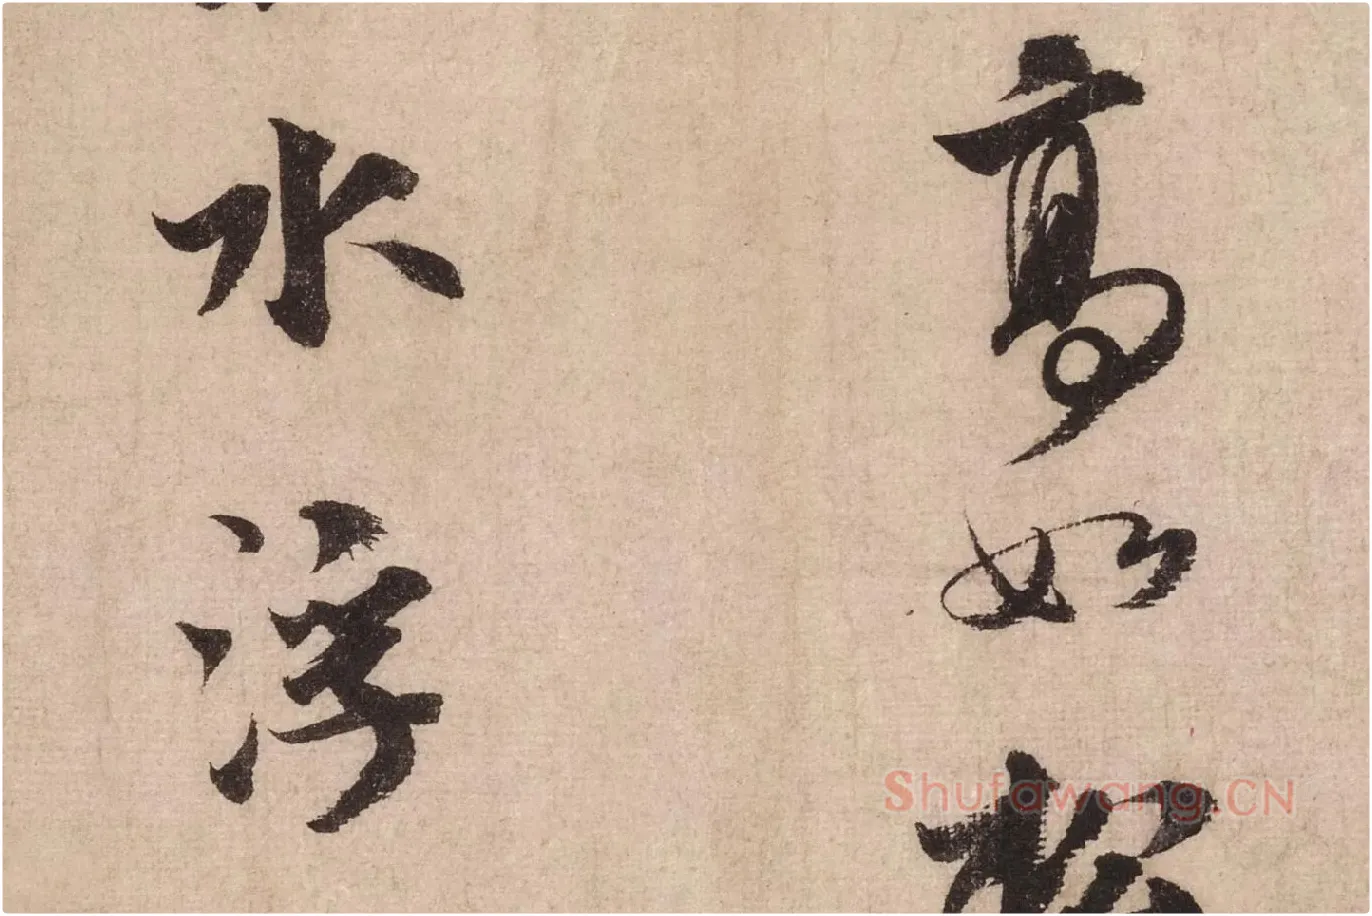 高如
水浮
Shufawang.CN